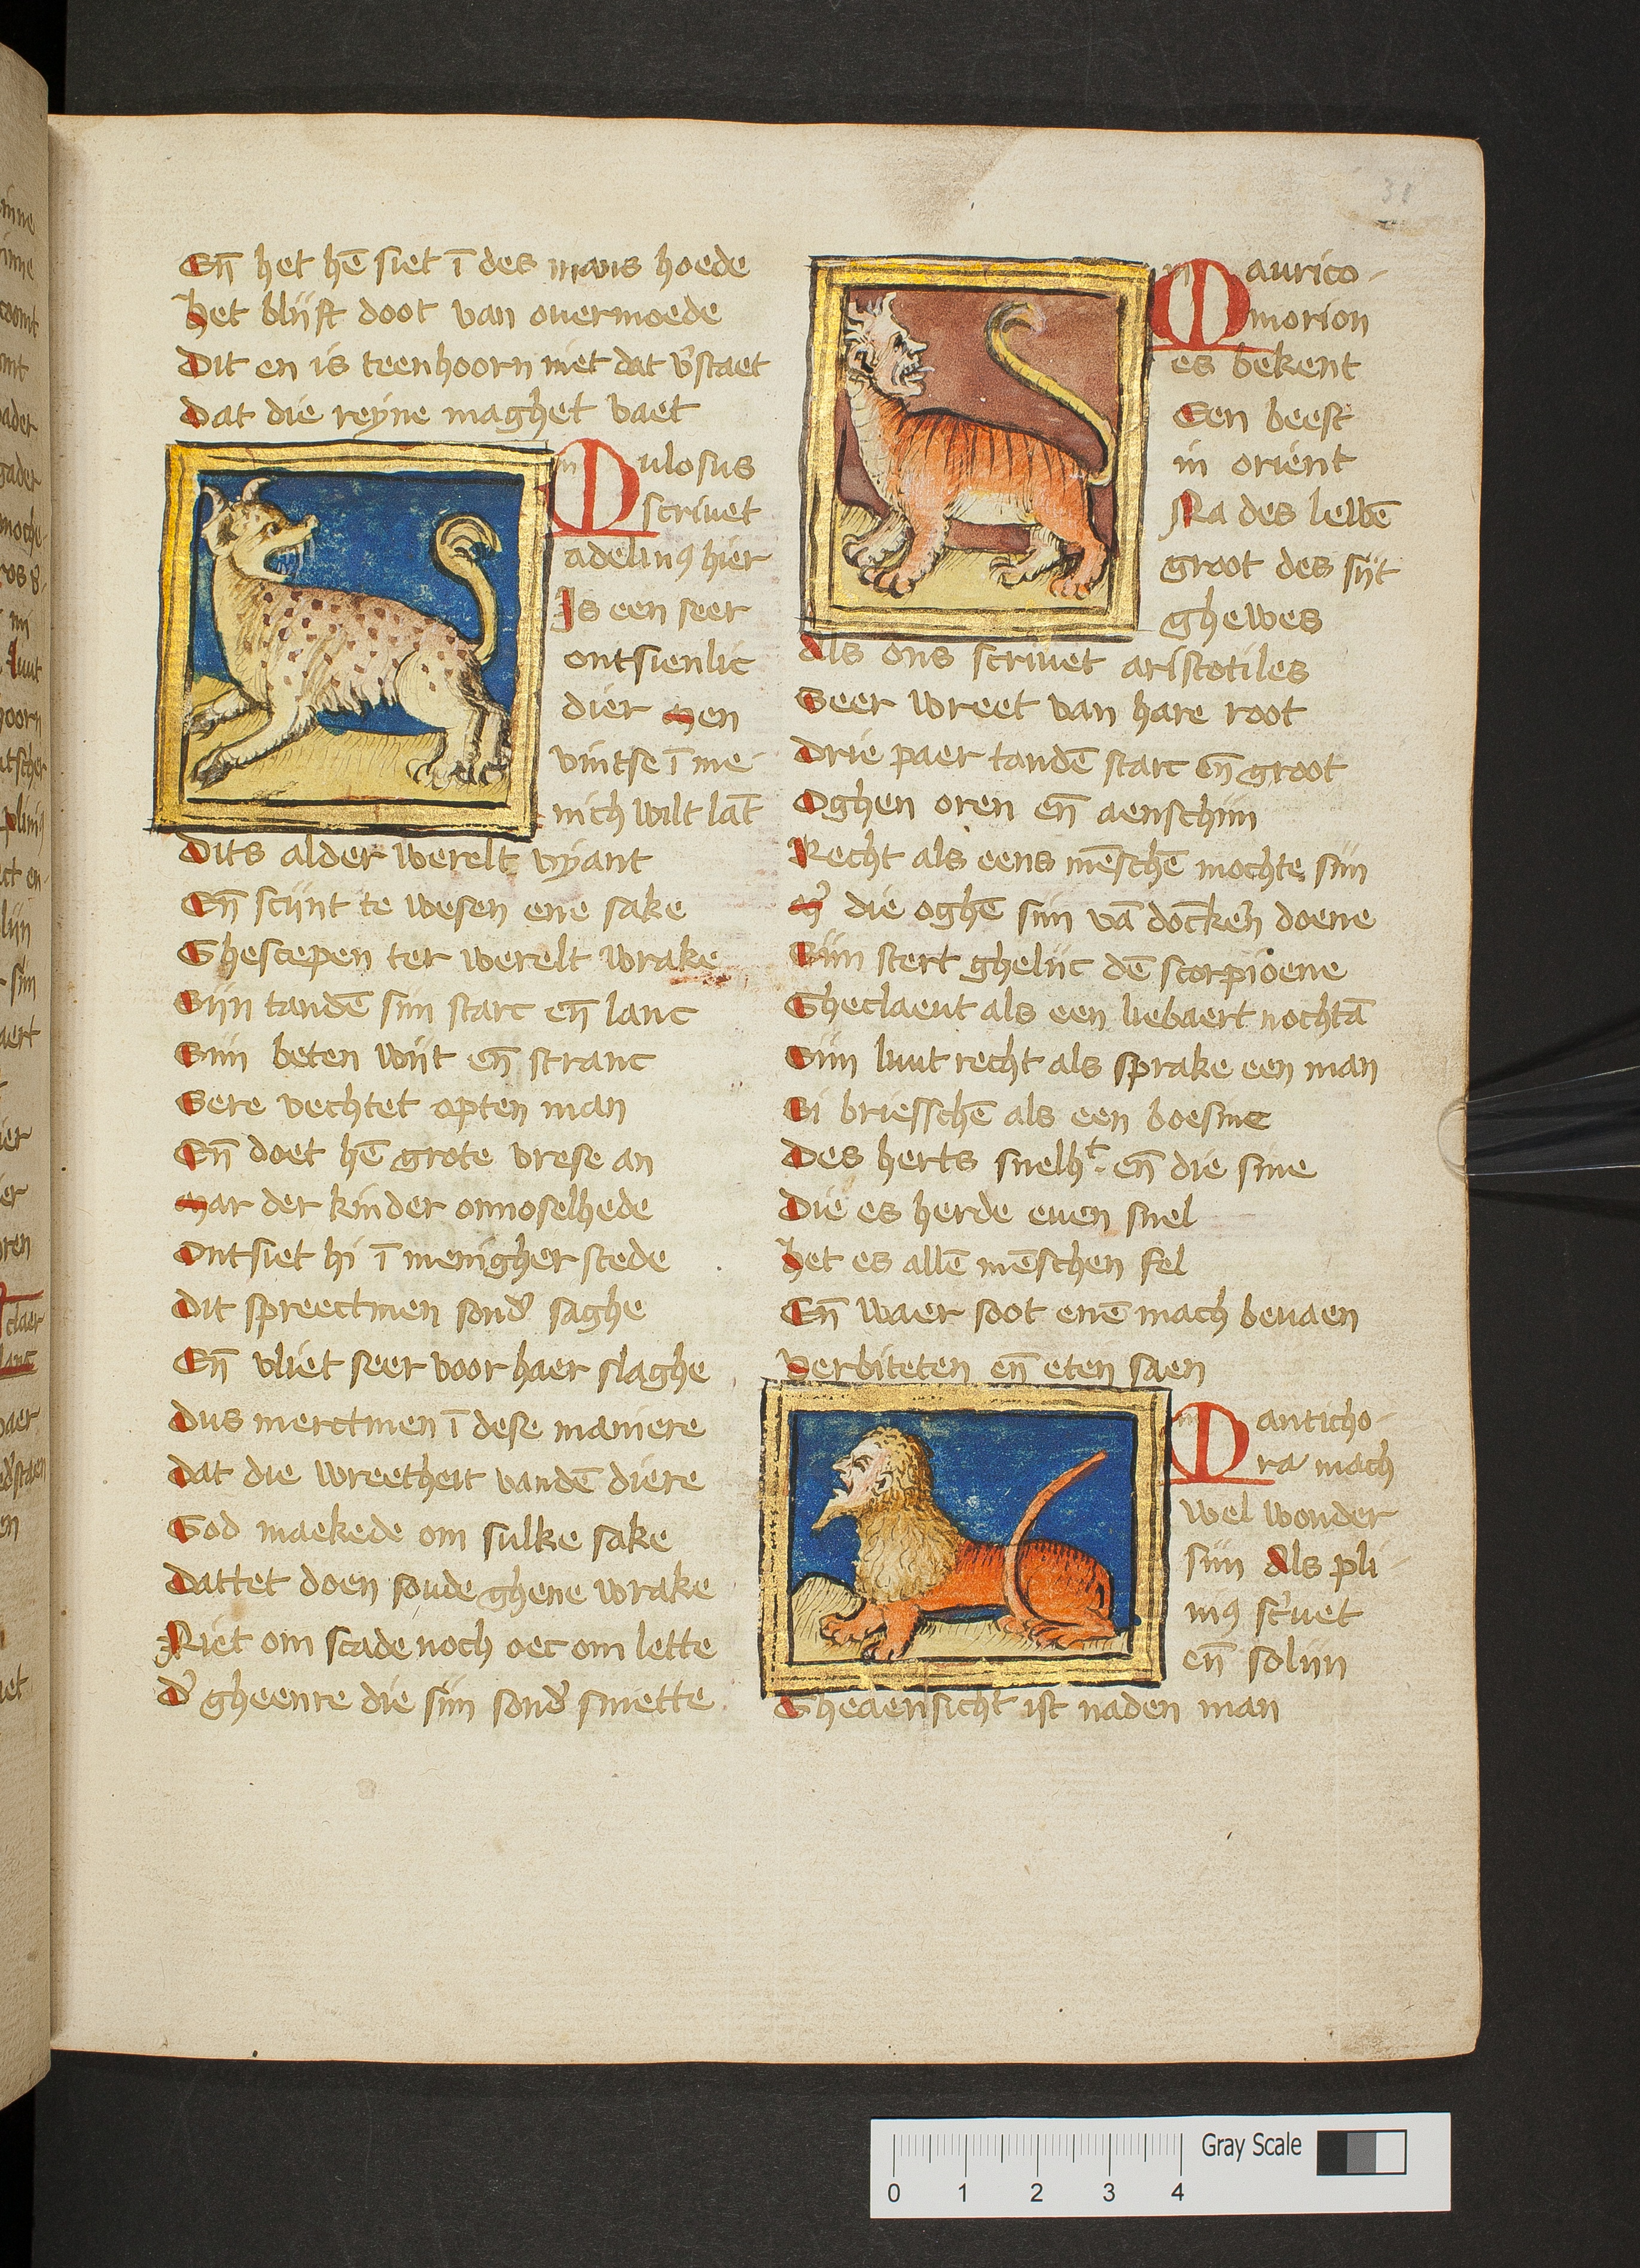 En̄ het hē siet ī des mans hoede
Het blijft doot van ouermoede
Dit en is teenhoorn niet dat v̉staet
Dat die reyne maghet vaet
Mulosus
scriuet
adelinꝰ hier
Is een seer
ontsienlic
dier Men
vintse ī me
nich wilt lāt
Dits alder werelt vyant
En̄ scijnt te wesen ene sake
Ghescepen ter werelt wrake
Sijn tandē sijn starc en̄ lanc
Sijn beten wijt en̄ stranc
Sere vechtet opten man
En̄ doet hē grote vrese an
Mar der kinder onnoselhede
Ontsiet hi ī menigher stede
Dit spreectmen sond̉ saghe
En̄ vliet seer voor haer slaghe
Dus merctmen ī dese maniere
Dat die wreetheit vandē diere
God maekede om sulke sake
Dattet doen soude ghene wrake
Niet om scade noch oec om lette
D̉ gheenre die sijn sond̉ smette
Maurico-
morion
es bekent
Een beest
in orient
Na des lewē
groot des sijt
ghewes
Als ons scriuet aristotiles
Seer wreet van hare root
Drie paer tandē starc en̄ groot
Oghen oren en̄ aenschijn
Recht als eens mēschē mochte sijn
M̉ die oghē sijn vā doncker̄ doene
Sijn stert ghelijc dē scorpioene
Gheclaeut als een liebaert nochtā
Sijn luut recht als sprake een man
Si briesschē als een boesine
Des herts snelhᵗ en̄ die sine
Die es herde euen snel
Het es allē mēschen fel
En̄ waer soot enē mach beuaen
Verbiteten en̄ eten saen
Manticho-
ra mach
wel wonder
sijn Als pli-
niꝰ sc̉uet
en̄ solijn
Gheaensicht ist naden man
Gray Scale
0 1 2 3 4